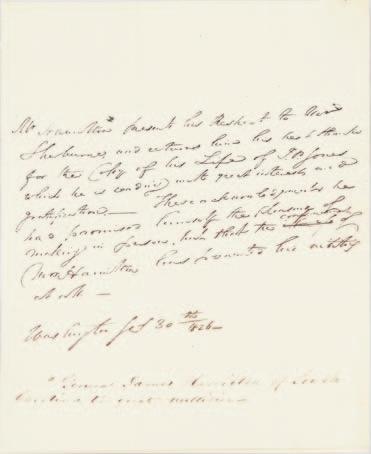 Mr Hamilton presents his Respects to Mr
Sherburne, and returns him his best thanks
for the Copy of his Life of J P Jones
which he is reading with great interest and
gratification — These acknowledgments he
had promised himself the pleasure of
making in person, but that the
Mrs Hamilton has prevented his visiting
at all —
Washington 30th 1826 —
General James Hamilton of South
Carolina